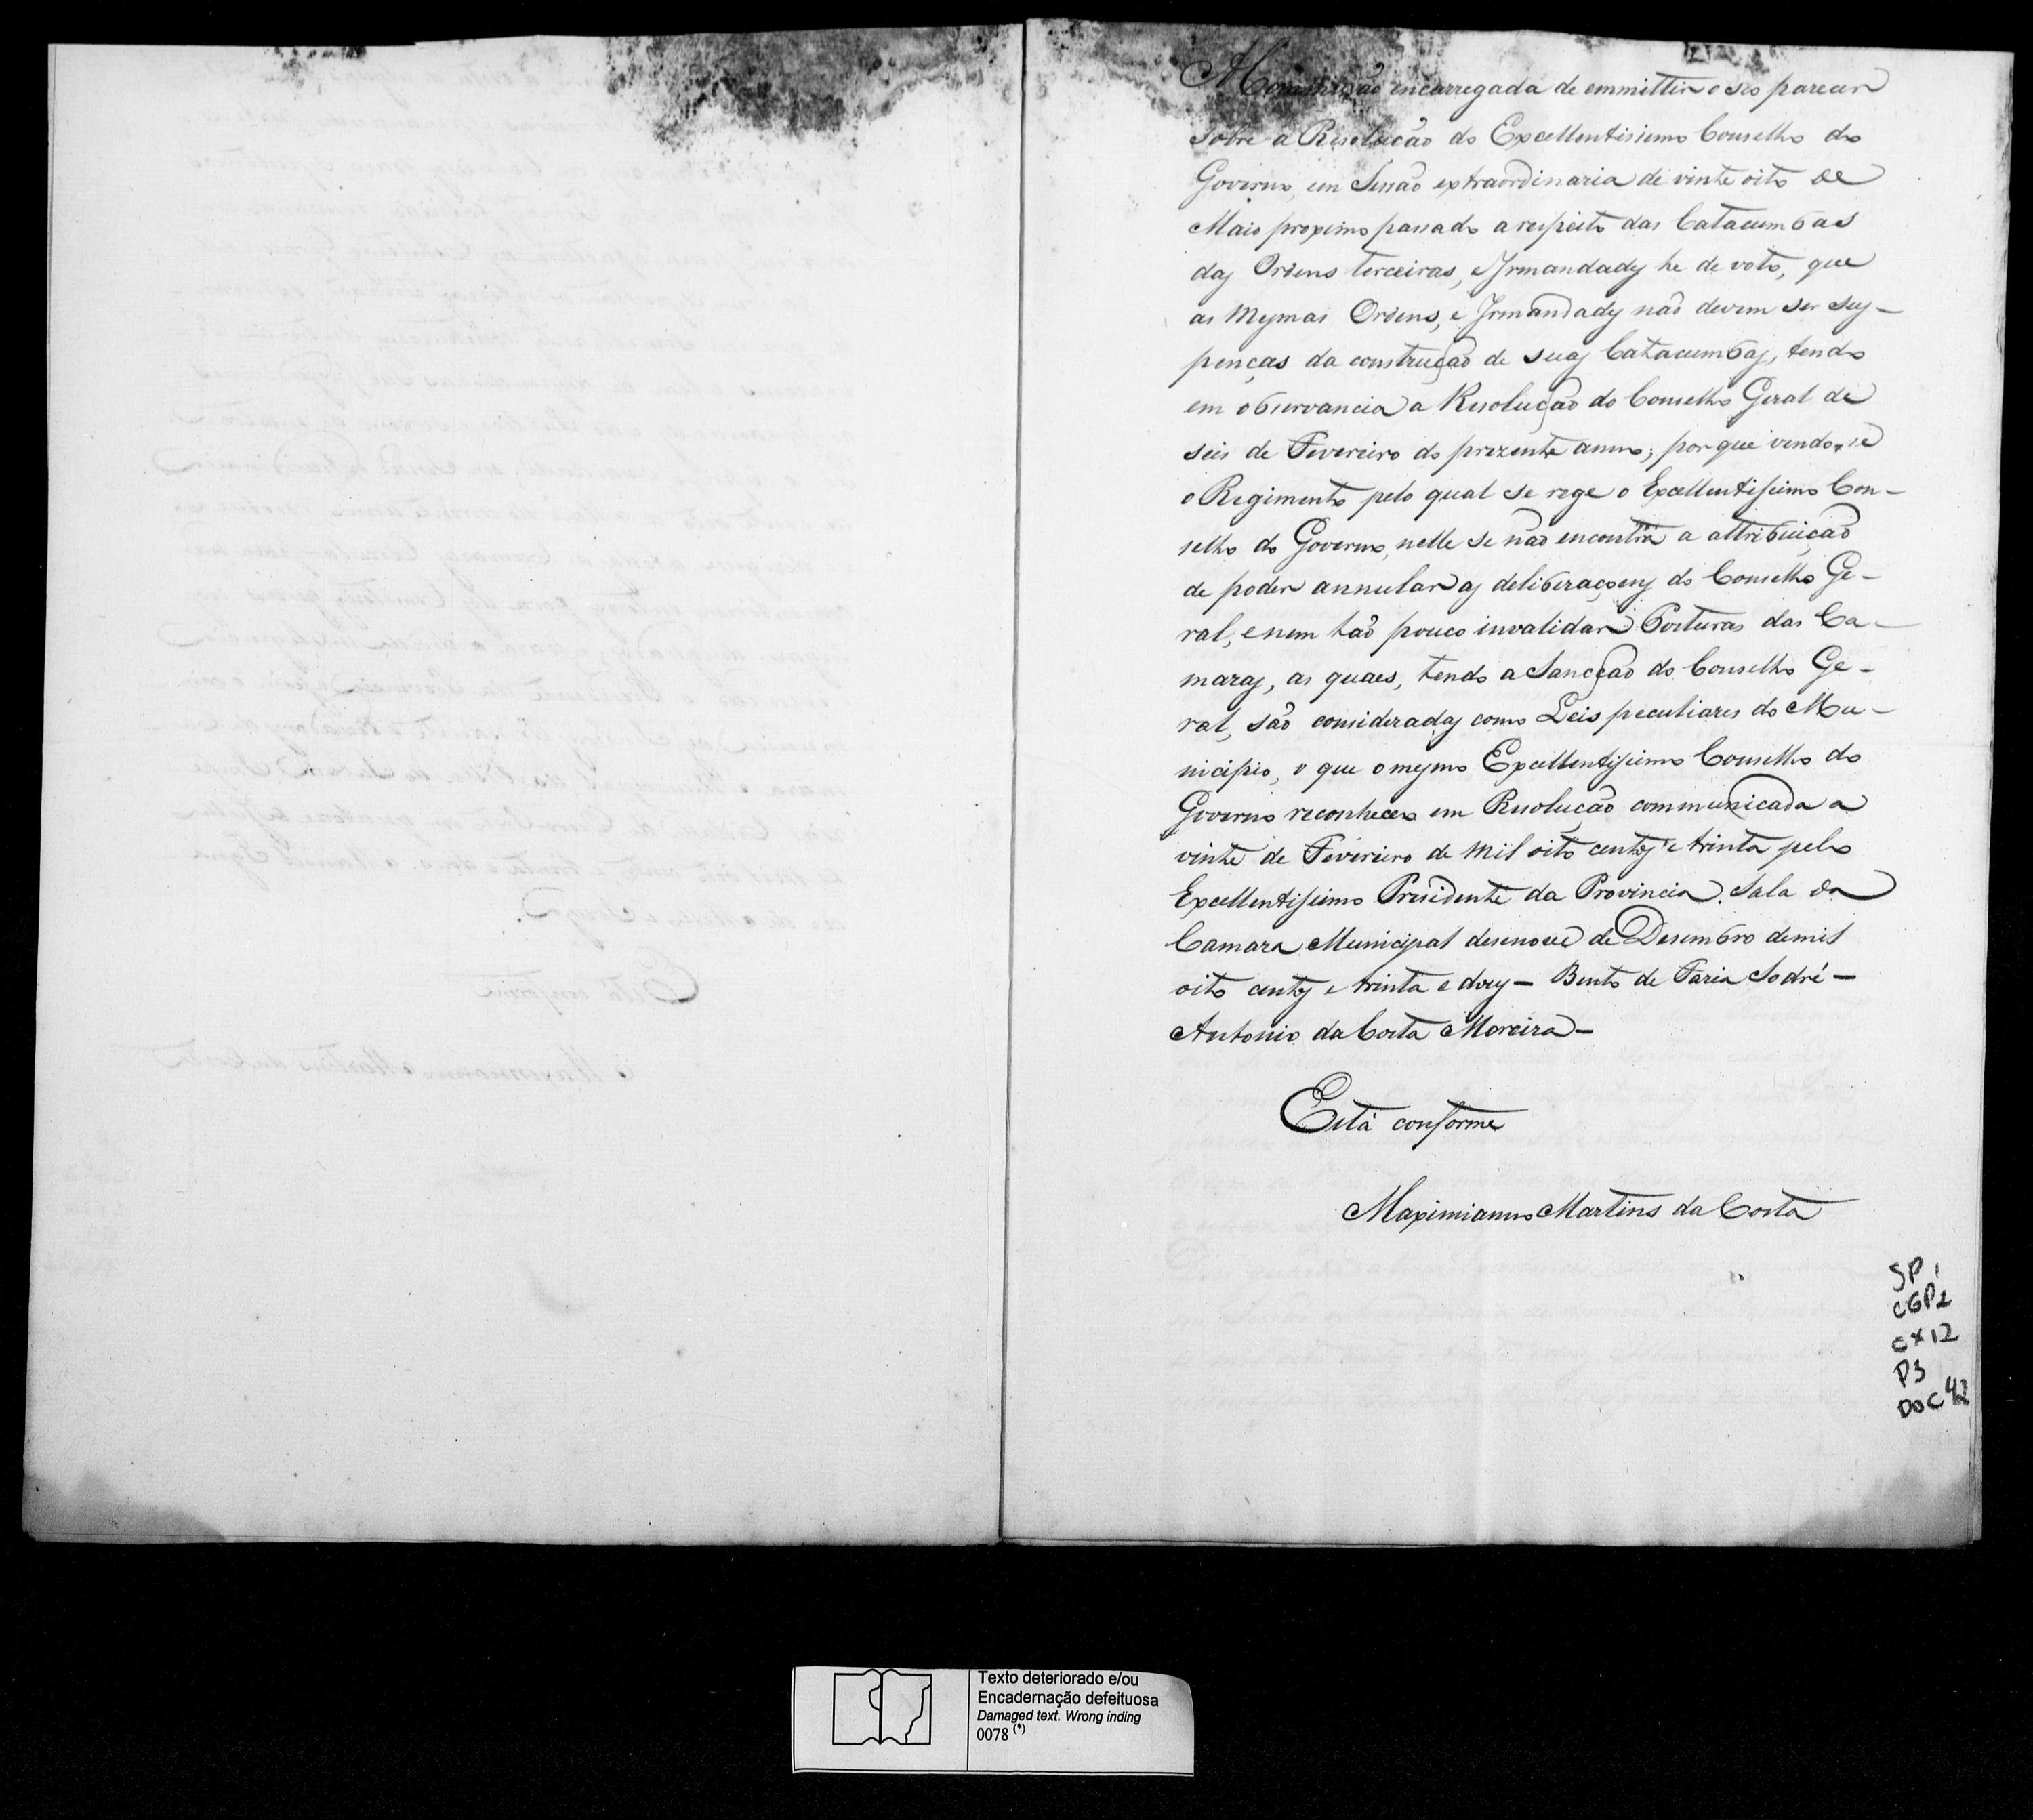 A Commissão encarregada de emmittir o seo parecer
sobre a Resolução do Excellentissimo Conselho do
Governo, em Sessão extraordinaria de vinte oito de
Maio proximo passado a respeito das Catacumbas
das Ordens terceiras, e Irmandades he de voto, que
as mesmas Ordens, e Irmandades não devem ser sus-
penças da construcção de suas Catacumbas, tendo
em observancia a Resolução do Conselho Geral de
seis de Fevereiro do prezente anno; por que vendo-se
o Regimento pelo qual se rege o Excellentissimo Con-
selho do Governo, nelle se não encontra a attribuição
de poder annullar as deliberaçoens do Conselho Ge-
ral, e nem tão pouco invalidar Posturas das Ca-
maras, as quaes, tendo a Sancção do Conselho Ge-
ral, são consideradas como Leis peculiares do Mu-
nicipio, o que o mesmo Excellentissimo Conselho do
Governo reconheceo em Resolução communicada a
vinte de Fevereiro de mil oito centos e trinta pelo
Excellentissimo Presidente da Provincia. Sala da
Camara Municipal desenove de Desembro de mil
oito centos e trinta e dous — Bento de Faria Sodré —
Antonio da Costa Moreira —
Está conforme
Maximianno Martins da Costa
SP1
CGP1
CX12
P3
DOC 42
Texto deteriorado e/ou
Encadernação defeituosa
Damaged text. Wrong inding
0078 (*)